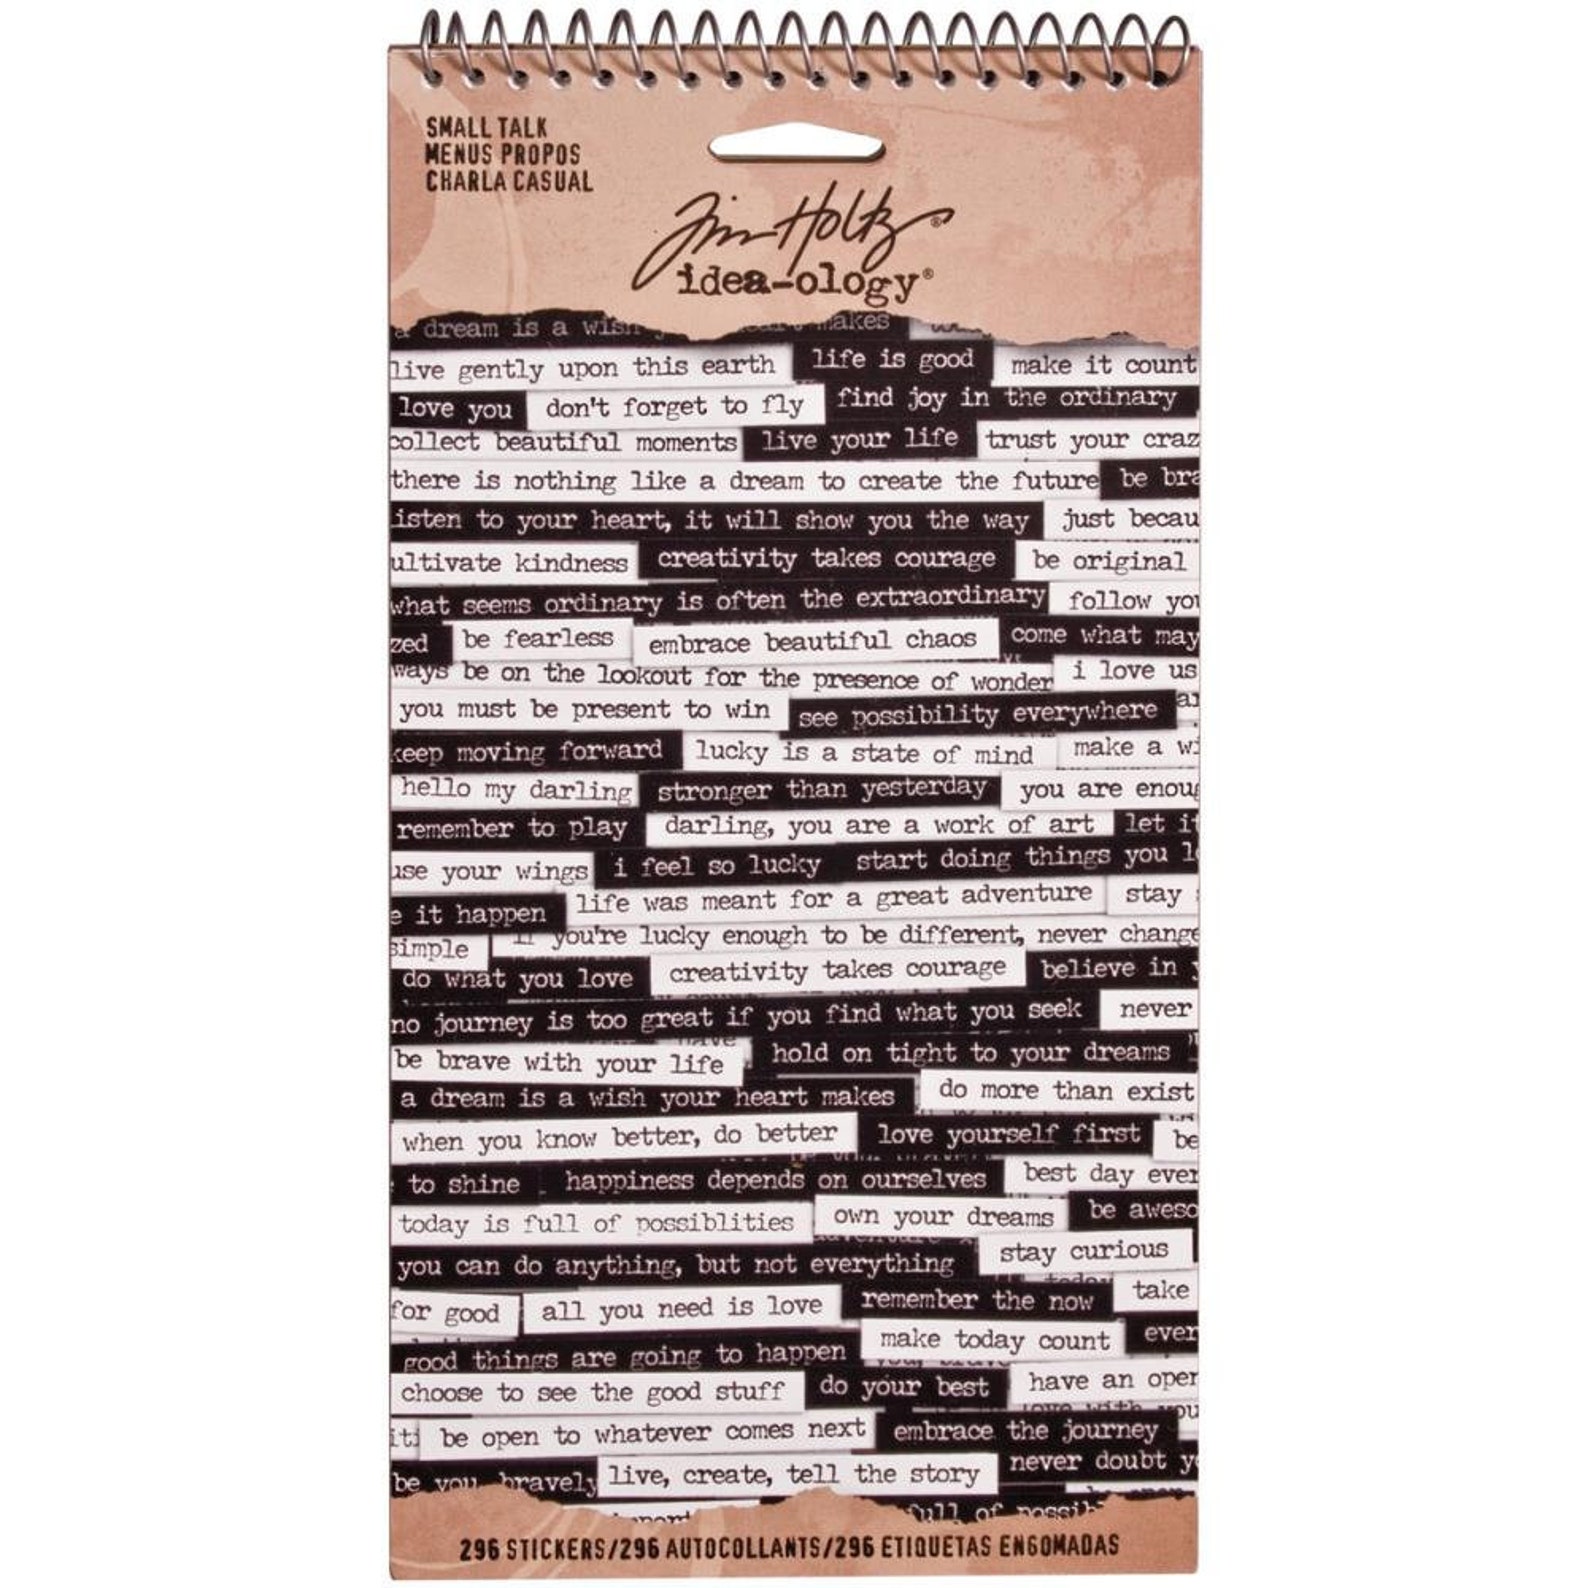 SMALL TALK
MENUS PROPOS
CHARLA CASUAL
Tim Holtz®
idea-ology®
a dream is a wish makes
live gently upon this earth life is good make it count
love you don't forget to fly find joy in the ordinary
collect beautiful moments live your life trust your craz
there is nothing like a dream to create the future be bra
isten to your heart, it will show you the way just becau
ultivate kindness creativity takes courage be original
what seems ordinary is often the extraordinary follow you
zed be fearless embrace beautiful chaos come what may
ways be on the lookout for the presence of wonder i love us
you must be present to win see possibility everywhere
keep moving forward lucky is a state of mind make a wi
hello my darling stronger than yesterday you are enoug
remember to play darling, you are a work of art let it
use your wings i feel so lucky start doing things you lo
e it happen life was meant for a great adventure stay
simple if you're lucky enough to be different, never change
do what you love creativity takes courage believe in
no journey is too great if you find what you seek never
have
be brave with your life hold on tight to your dreams
a dream is a wish your heart makes do more than exist
when you know better, do better love yourself first be
to shine happiness depends on ourselves best day ever
today is full of possiblities own your dreams be aweso
you can do anything, but not everything stay curious
for good all you need is love remember the now take
good things are going to happen make today count ever
choose to see the good stuff do your best have an open
iti be open to whatever comes next embrace the journey
be you, bravely live, create, tell the story never doubt yo
full of possib
296 STICKERS/296 AUTOCOLLANTS/296 ETIQUETAS ENGOMADAS